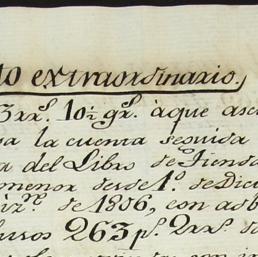 to extraordinario,
3 rrs. 10½ grs. à que asc
sa la cuenta seguida
a del Libro de Tienda
menor desde 1º. de Dici
de 1806, con asb
263 ps. 2 rrs. d